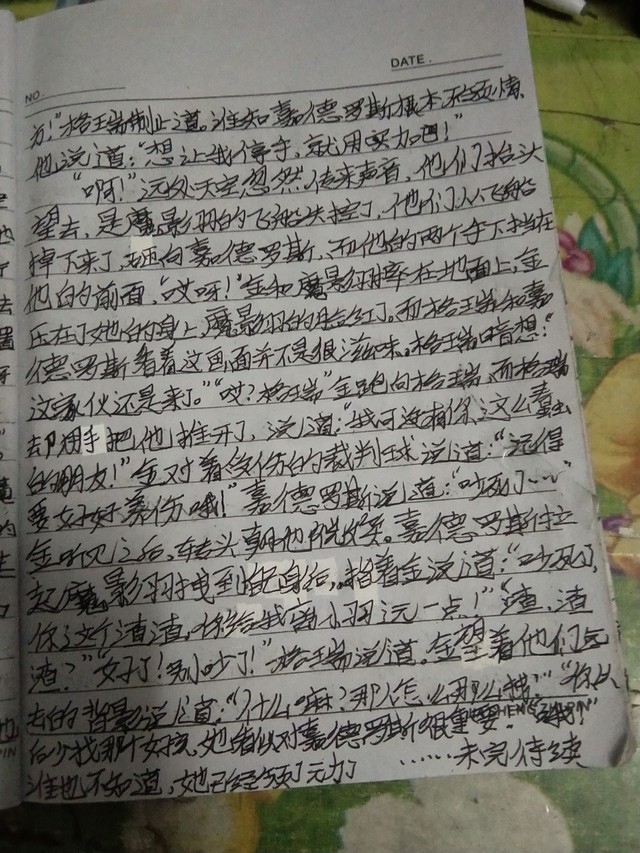 NO.
DATE.
方！”格王瑞制止道。谁知嘉德罗斯根本不领情，
他说道：“想让我停手，就用实力吧！”
“啊！”远处天空忽然传来声音，他们抬头
望去，是魔影羽的飞船失控了，他们从飞船
掉下来了，砸向嘉德罗斯，而他的两个手下挡在
他的前面，“哎呀！”金和魔影羽摔在地面上，金
压在了她的身上，魔影羽的脸红了。而格王瑞和嘉
德罗斯看着这画面并不是很滋味。格王瑞暗想：“
这家伙还是来了。”“哎？格王瑞”金跑向格王瑞，而格王瑞
却用手把他推开了，说道：“我可没有你这么蠢
的朋友！”金对着受伤的裁判球说道：“记得
要好好养伤哦！”嘉德罗斯说道：“吵死了~~”
金听见之后，转头朝他说 。嘉德罗斯拉
起魔影羽拽到自己身后，指着金说道：“吵死了，
你这个渣渣，你给我离小羽远一点！”“渣，渣
渣？”“好了！别吵了！”格王瑞说道。金望着他们远
去的背影说道：“什么嘛？那人怎么那么 ”“你以
后少找那个女孩，她貌似对嘉德罗斯很重要。”“ ！”
谁也不知道，她已经领了元力 ……未完待续